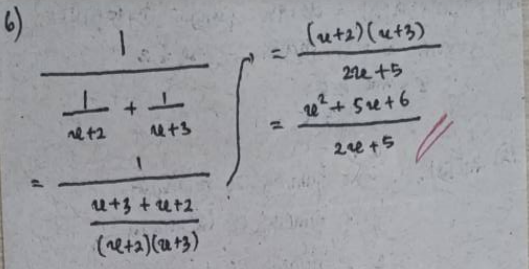 6)
1 / (1/(x+2) + 1/(x+3))
= 1 / ((x+3+x+2)/((x+2)(x+3)))
= (x+2)(x+3) / (2x+5)
= (x² + 5x + 6) / (2x+5)